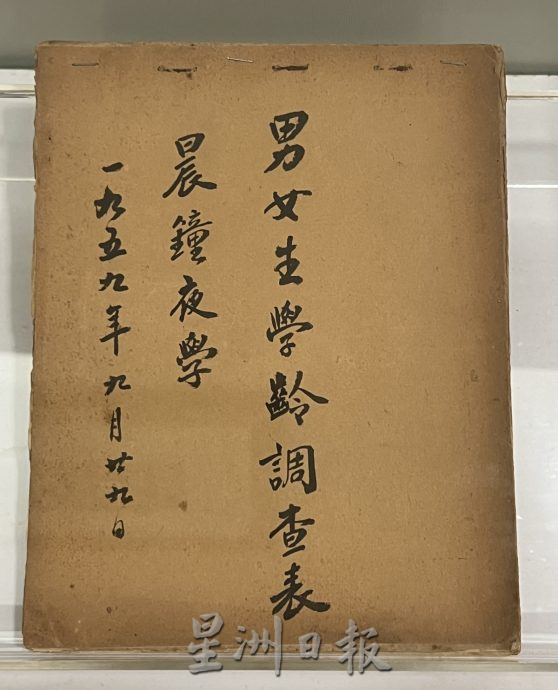 男女生學齡調查表
晨鐘夜學
一九五九年九月廿九日
星洲日報